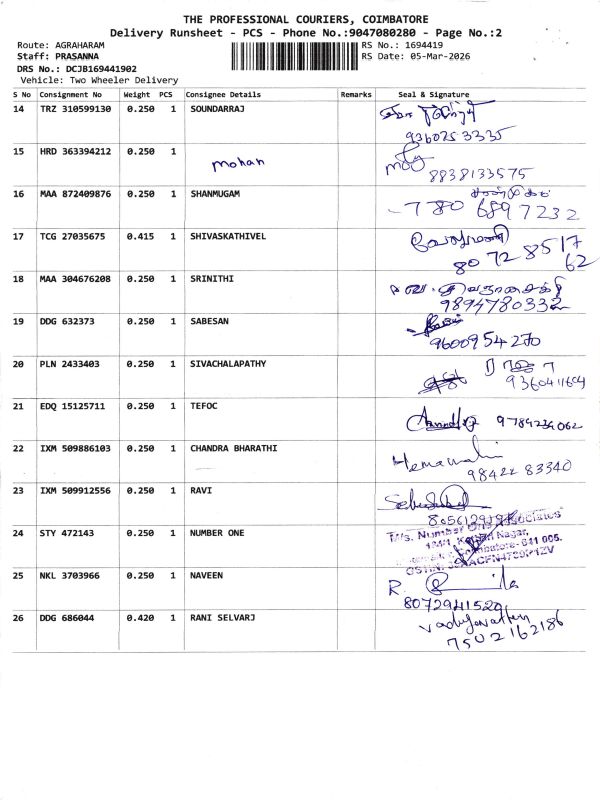 THE PROFESSIONAL COURIERS, COIMBATORE
Delivery Runsheet - PCS - Phone No.:9047080280 - Page No.:2
Route: AGRAHARAM
RS No.: 1694419
Staff: PRASANNA
RS Date: 05-Mar-2026
DRS No.: DCJB169441902
Vehicle: Two Wheeler Delivery
S No Consignment No Weight PCS Consignee Details Remarks Seal & Signature
14 TRZ 310599130 0.250 1 SOUNDARRAJ
9360253335
15 HRD 363394212 0.250 1
mohan
8838133575
16 MAA 872409876 0.250 1 SHANMUGAM
சண்முகம்
7806897232
17 TCG 27035675 0.415 1 SHIVASKATHIVEL
80728517
62
18 MAA 304676208 0.250 1 SRINITHI
9894780332
19 DDG 632373 0.250 1 SABESAN
9600954270
20 PLN 2433403 0.250 1 SIVACHALAPATHY
9360411604
21 EDQ 15125711 0.250 1 TEFOC
9789234062
22 IXM 509886103 0.250 1 CHANDRA BHARATHI
9842283340
23 IXM 509912556 0.250 1 RAVI
24 STY 472143 0.250 1 NUMBER ONE
M/s. Number One Associates
Nagar,
Coimbatore- 641 005.
25 NKL 3703966 0.250 1 NAVEEN
R.
8072941529
26 DDG 686044 0.420 1 RANI SELVARJ
7502162186